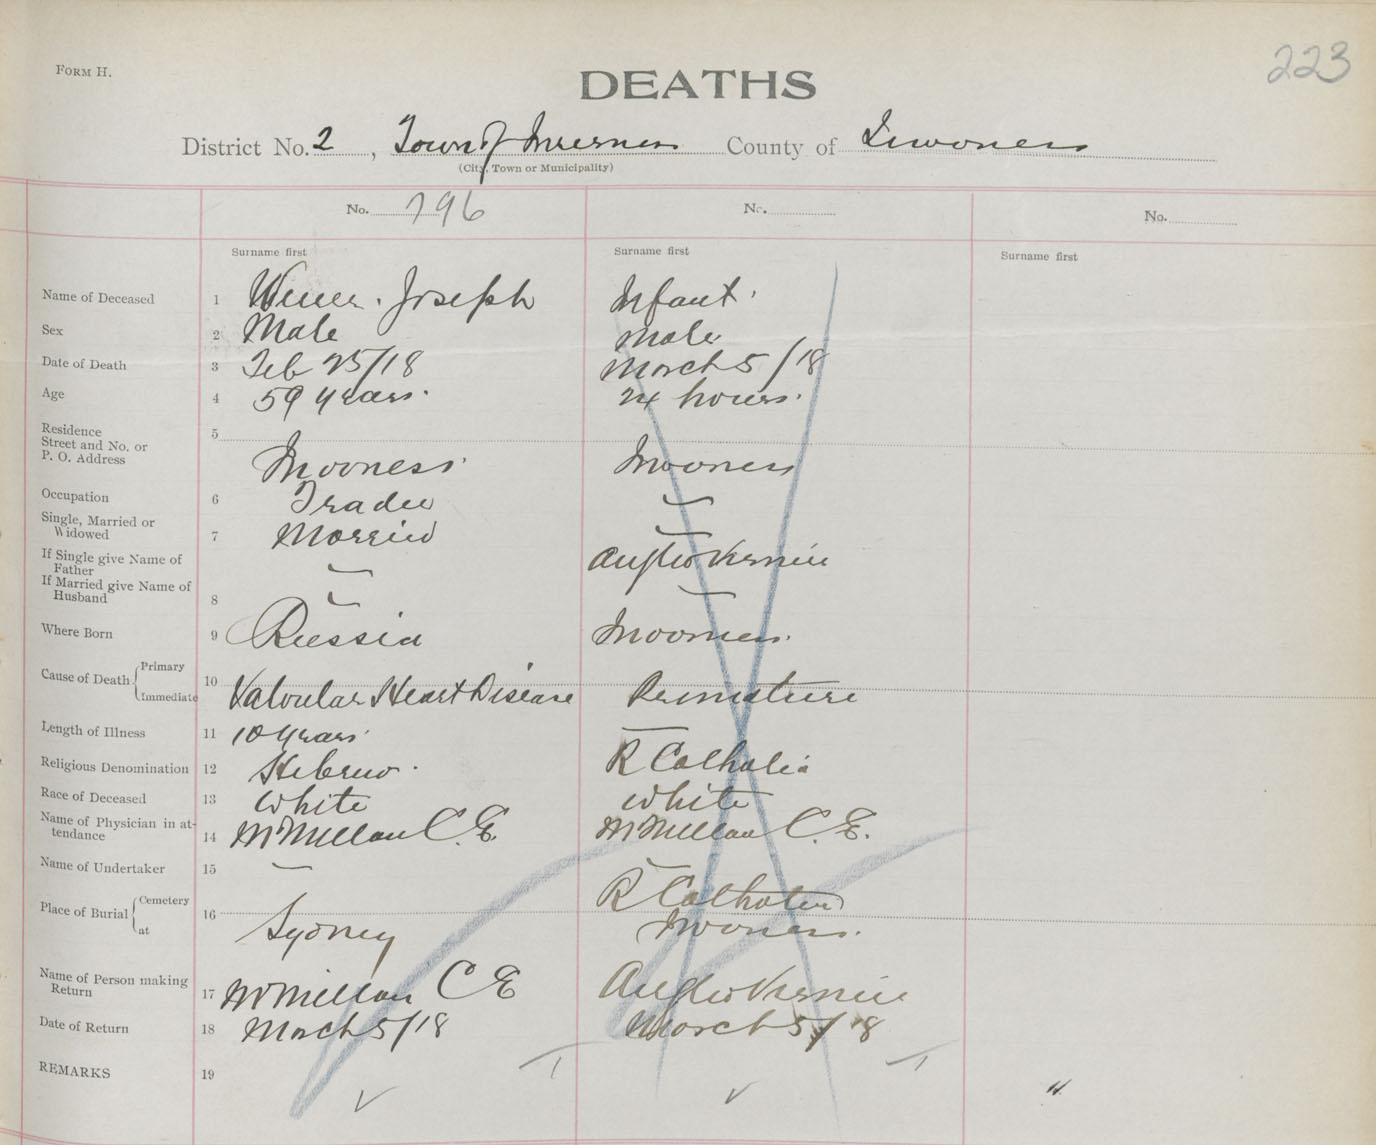 FORM H.
223
DEATHS
District No. 2, Town of Inverness County of Inverness
(City, Town or Municipality)
No. 796
No.
No.
Surname first
Surname first
Surname first
Name of Deceased 1 Joseph Infant
Sex 2 Male Male
Date of Death 3 Feb 25/18 March 5/18
Age 4 59 years. 24 hours.
Residence
Street and No. or
P. O. Address
5 Inverness Inverness
Occupation 6 Trader
Single, Married or
Widowed
7 Married
If Single give Name of
Father
If Married give Name of
Husband
8
Where Born 9 Russia Inverness.
Cause of Death { Primary
Immediate
10 Valvular Heart Disease Premature
Length of Illness 11 10 years
Religious Denomination 12 Hebrew R Catholic
Race of Deceased 13 White White
Name of Physician in at-
tendance
14 McMillan C. E. McMillan C. E.
Name of Undertaker 15
Place of Burial { Cemetery
at
16 Sydney R Catholic
Inverness.
Name of Person making
Return
17 McMillan C E
Date of Return 18 March 5/18 March 5/18
REMARKS 19